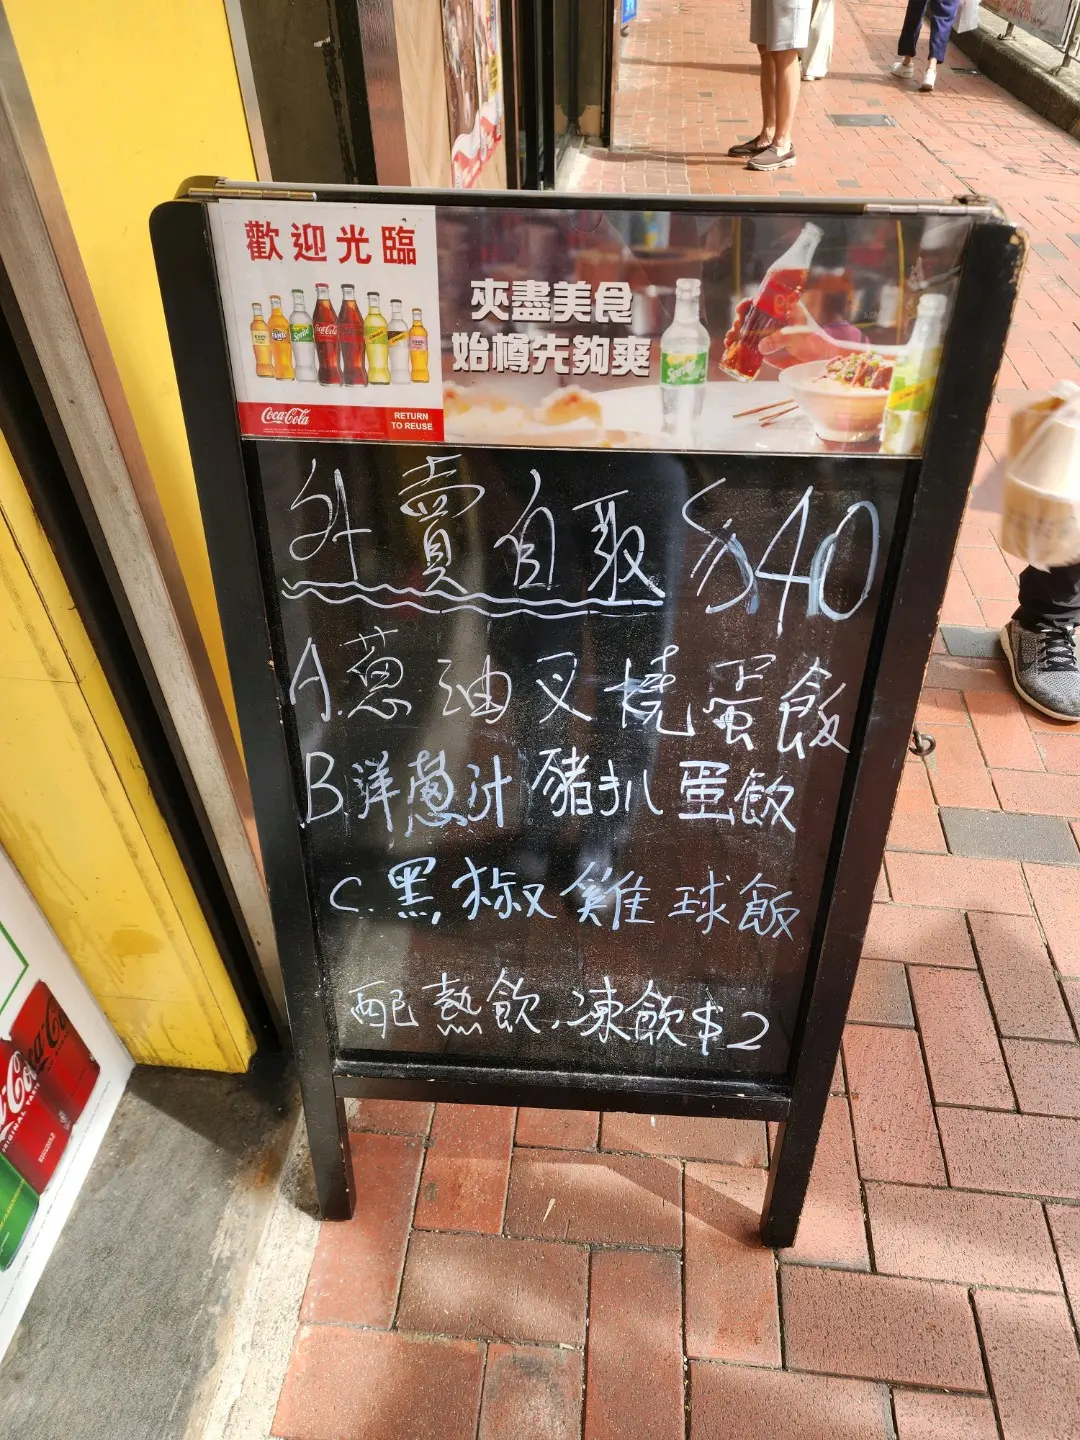 歡迎光臨
Coca-Cola
RETURN
TO REUSE
夾盡美食
始樽先夠爽
Sprite
外賣自取 $40
A.蔥油叉燒蛋飯
B.洋蔥汁豬扒蛋飯
C.黑椒雞球飯
配熱飲,凍飲$2
Coca-Cola
ORIGINAL TASTE